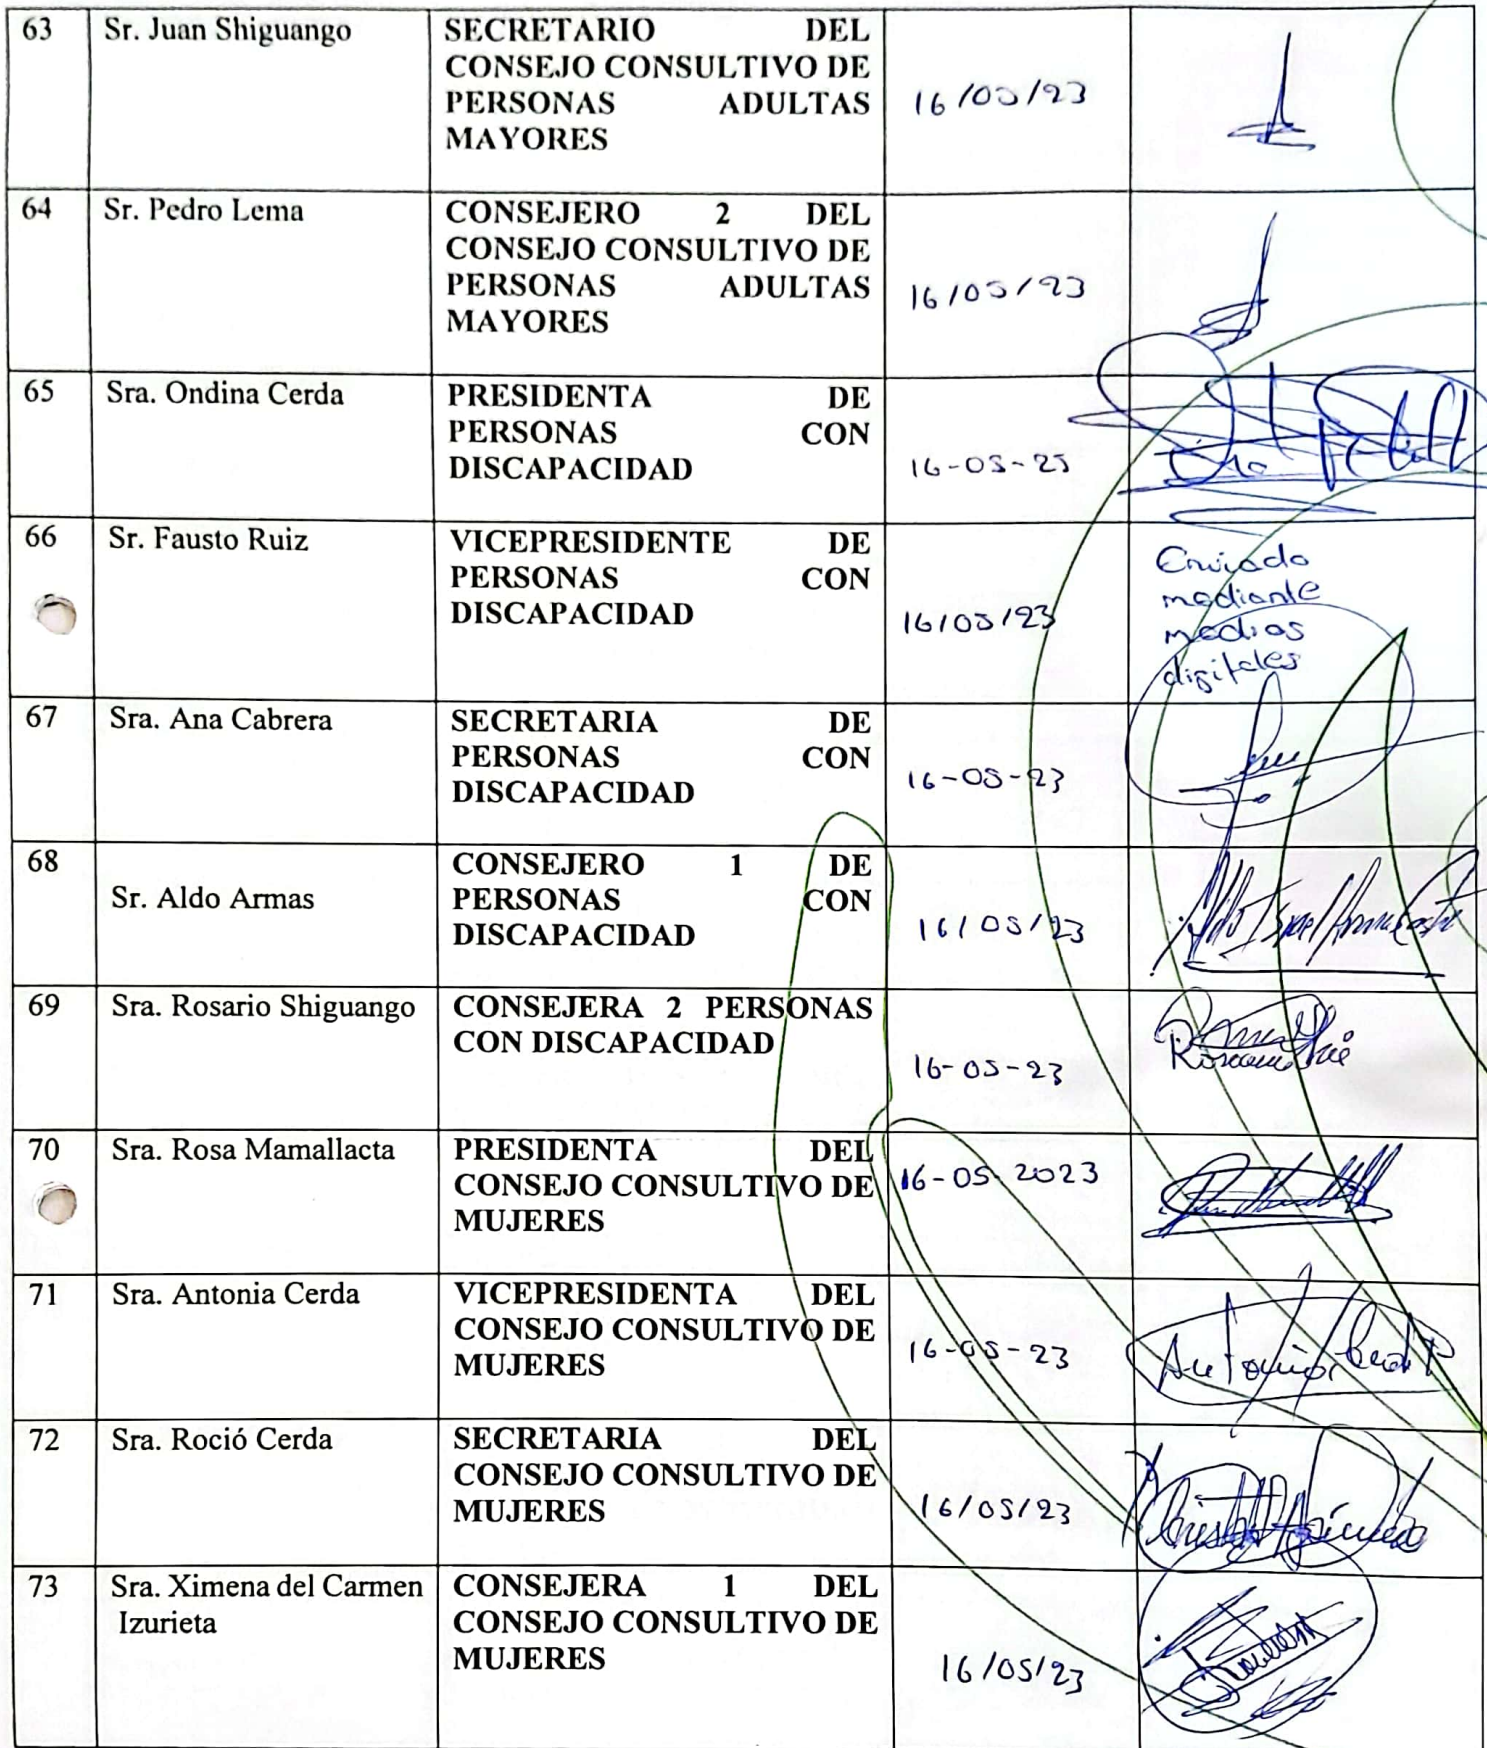 63 Sr. Juan Shiguango SECRETARIO DEL
CONSEJO CONSULTIVO DE
PERSONAS ADULTAS
MAYORES
16/05/23
64 Sr. Pedro Lema CONSEJERO 2 DEL
CONSEJO CONSULTIVO DE
PERSONAS ADULTAS
MAYORES
16/05/23
65 Sra. Ondina Cerda PRESIDENTA DE
PERSONAS CON
DISCAPACIDAD
16-05-23
66 Sr. Fausto Ruiz VICEPRESIDENTE DE
PERSONAS CON
DISCAPACIDAD
16/05/23
Enviado
mediante
medios
digitales
67 Sra. Ana Cabrera SECRETARIA DE
PERSONAS CON
DISCAPACIDAD
16-05-23
68 Sr. Aldo Armas CONSEJERO 1 DE
PERSONAS CON
DISCAPACIDAD
16/05/23
69 Sra. Rosario Shiguango CONSEJERA 2 PERSONAS
CON DISCAPACIDAD
16-05-23
70 Sra. Rosa Mamallacta PRESIDENTA DEL
CONSEJO CONSULTIVO DE
MUJERES
16-05-2023
71 Sra. Antonia Cerda VICEPRESIDENTA DEL
CONSEJO CONSULTIVO DE
MUJERES
16-05-23
72 Sra. Roció Cerda SECRETARIA DEL
CONSEJO CONSULTIVO DE
MUJERES
16/05/23
73 Sra. Ximena del Carmen
Izurieta
CONSEJERA 1 DEL
CONSEJO CONSULTIVO DE
MUJERES
16/05/23